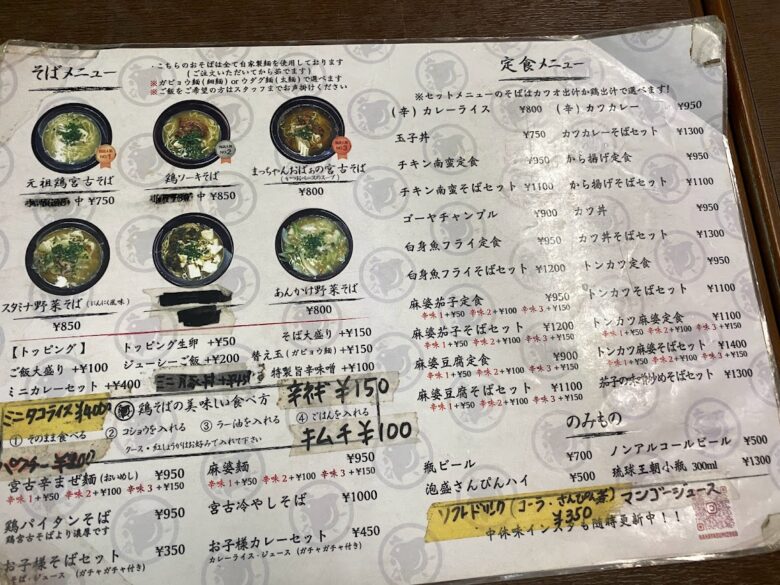 そばメニュー
・こちらのおそばは全て自家製麺を使用しております
(ご注文いただいてから茹でます)
※ガビョウ麺(細麺) or ウダグ麺(太麺)で選べます
※ご飯をご希望の方はスタッフまでお声掛けください
元祖鶏宮古そば
中 ¥750
鶏ソーキそば
中 ¥850
まっちゃんおばぁの宮古そば
¥800
スタミナ野菜そば(にんにく風味)
¥850
あんかけ野菜そば
¥800
【トッピング】
トッピング生卵 +¥50
そば大盛り +¥150
ご飯大盛り +¥100
ジューシーご飯 +¥200
替え玉(ガビョウ麺) +¥150
ミニカレーセット +¥400
特製旨辛味噌 +¥100
ミニタコライス ¥400
鶏そばの美味しい食べ方
辛ネギ ¥150
① そのまま食べる
② コショウを入れる
③ ラー油を入れる
④ ごはんを入れる
クース・紅しょうがはお好みて入れて下さい
キムチ ¥100
パクチー
宮古辛まぜ麺(おいめし) ¥950
辛味1+¥50 辛味2+¥100 辛味3+¥150
麻婆麺 ¥950
辛味1+¥50 辛味2+¥100 辛味3+¥150
鶏パイタンそば ¥950
鶏宮古そばより濃厚です
宮古冷やしそば ¥1000
お子様そばセット ¥350
そば・ジュース (ガチャガチャ付き)
お子様カレーセット ¥450
カレーライス・ジュース (ガチャガチャ付き)
定食メニュー
※セットメニューのそばはカツオ出汁か鶏出汁で選べます!
(辛) カレーライス ¥800
(辛) カツカレー ¥950
玉子丼 ¥750
カツカレーそばセット ¥1300
チキン南蛮定食 ¥950
から揚げ定食 ¥950
チキン南蛮そばセット ¥1100
から揚げそばセット ¥1100
ゴーヤチャンプル ¥900
カツ丼 ¥950
白身魚フライ定食 ¥950
カツ丼そばセット ¥1300
白身魚フライそばセット ¥1200
トンカツ定食 ¥950
麻婆茄子定食 ¥950
辛味1+¥50 辛味2+¥100 辛味3+¥150
トンカツそばセット ¥1100
麻婆茄子そばセット ¥1200
辛味1+¥50 辛味2+¥100 辛味3+¥150
トンカツ麻婆定食 ¥1100
辛味1+¥50 辛味2+¥100 辛味3+¥150
麻婆豆腐定食 ¥900
辛味1+¥50 辛味2+¥100 辛味3+¥150
トンカツ麻婆そばセット ¥1400
辛味1+¥50 辛味2+¥100 辛味3+¥150
麻婆豆腐そばセット ¥1100
辛味1+¥50 辛味2+¥100 辛味3+¥150
茄子の味噌炒めそばセット ¥1300
のみもの
瓶ビール ¥700
ノンアルコールビール ¥500
泡盛さんぴんハイ ¥500
琉球王朝小瓶 300ml ¥1300
ソフトドリンク (コーラ・さんぴん茶) マンゴージュース
¥350
中休味インスタも随時更新中!!